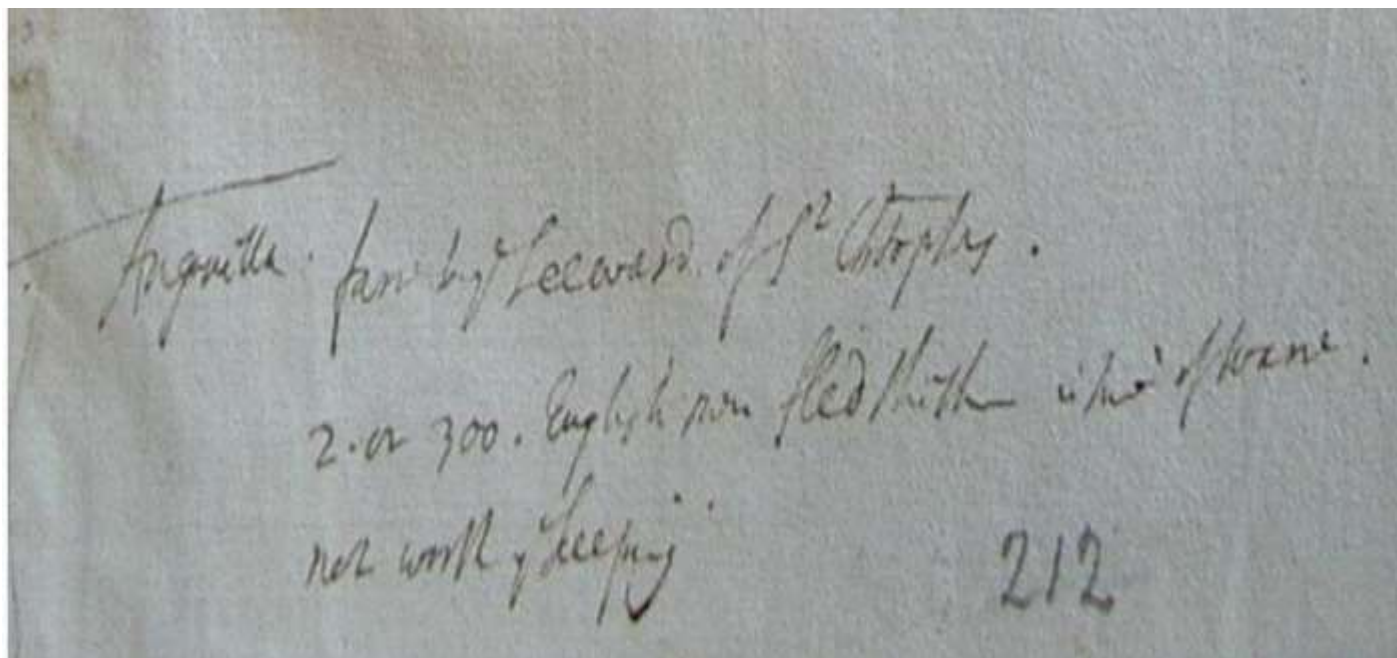 Anguilla. farr by yᵉ Leeward of Sᵗ Cristophrs.
2. or 300. English men fled thither in time of warre.
not worth yᵉ keeping
212